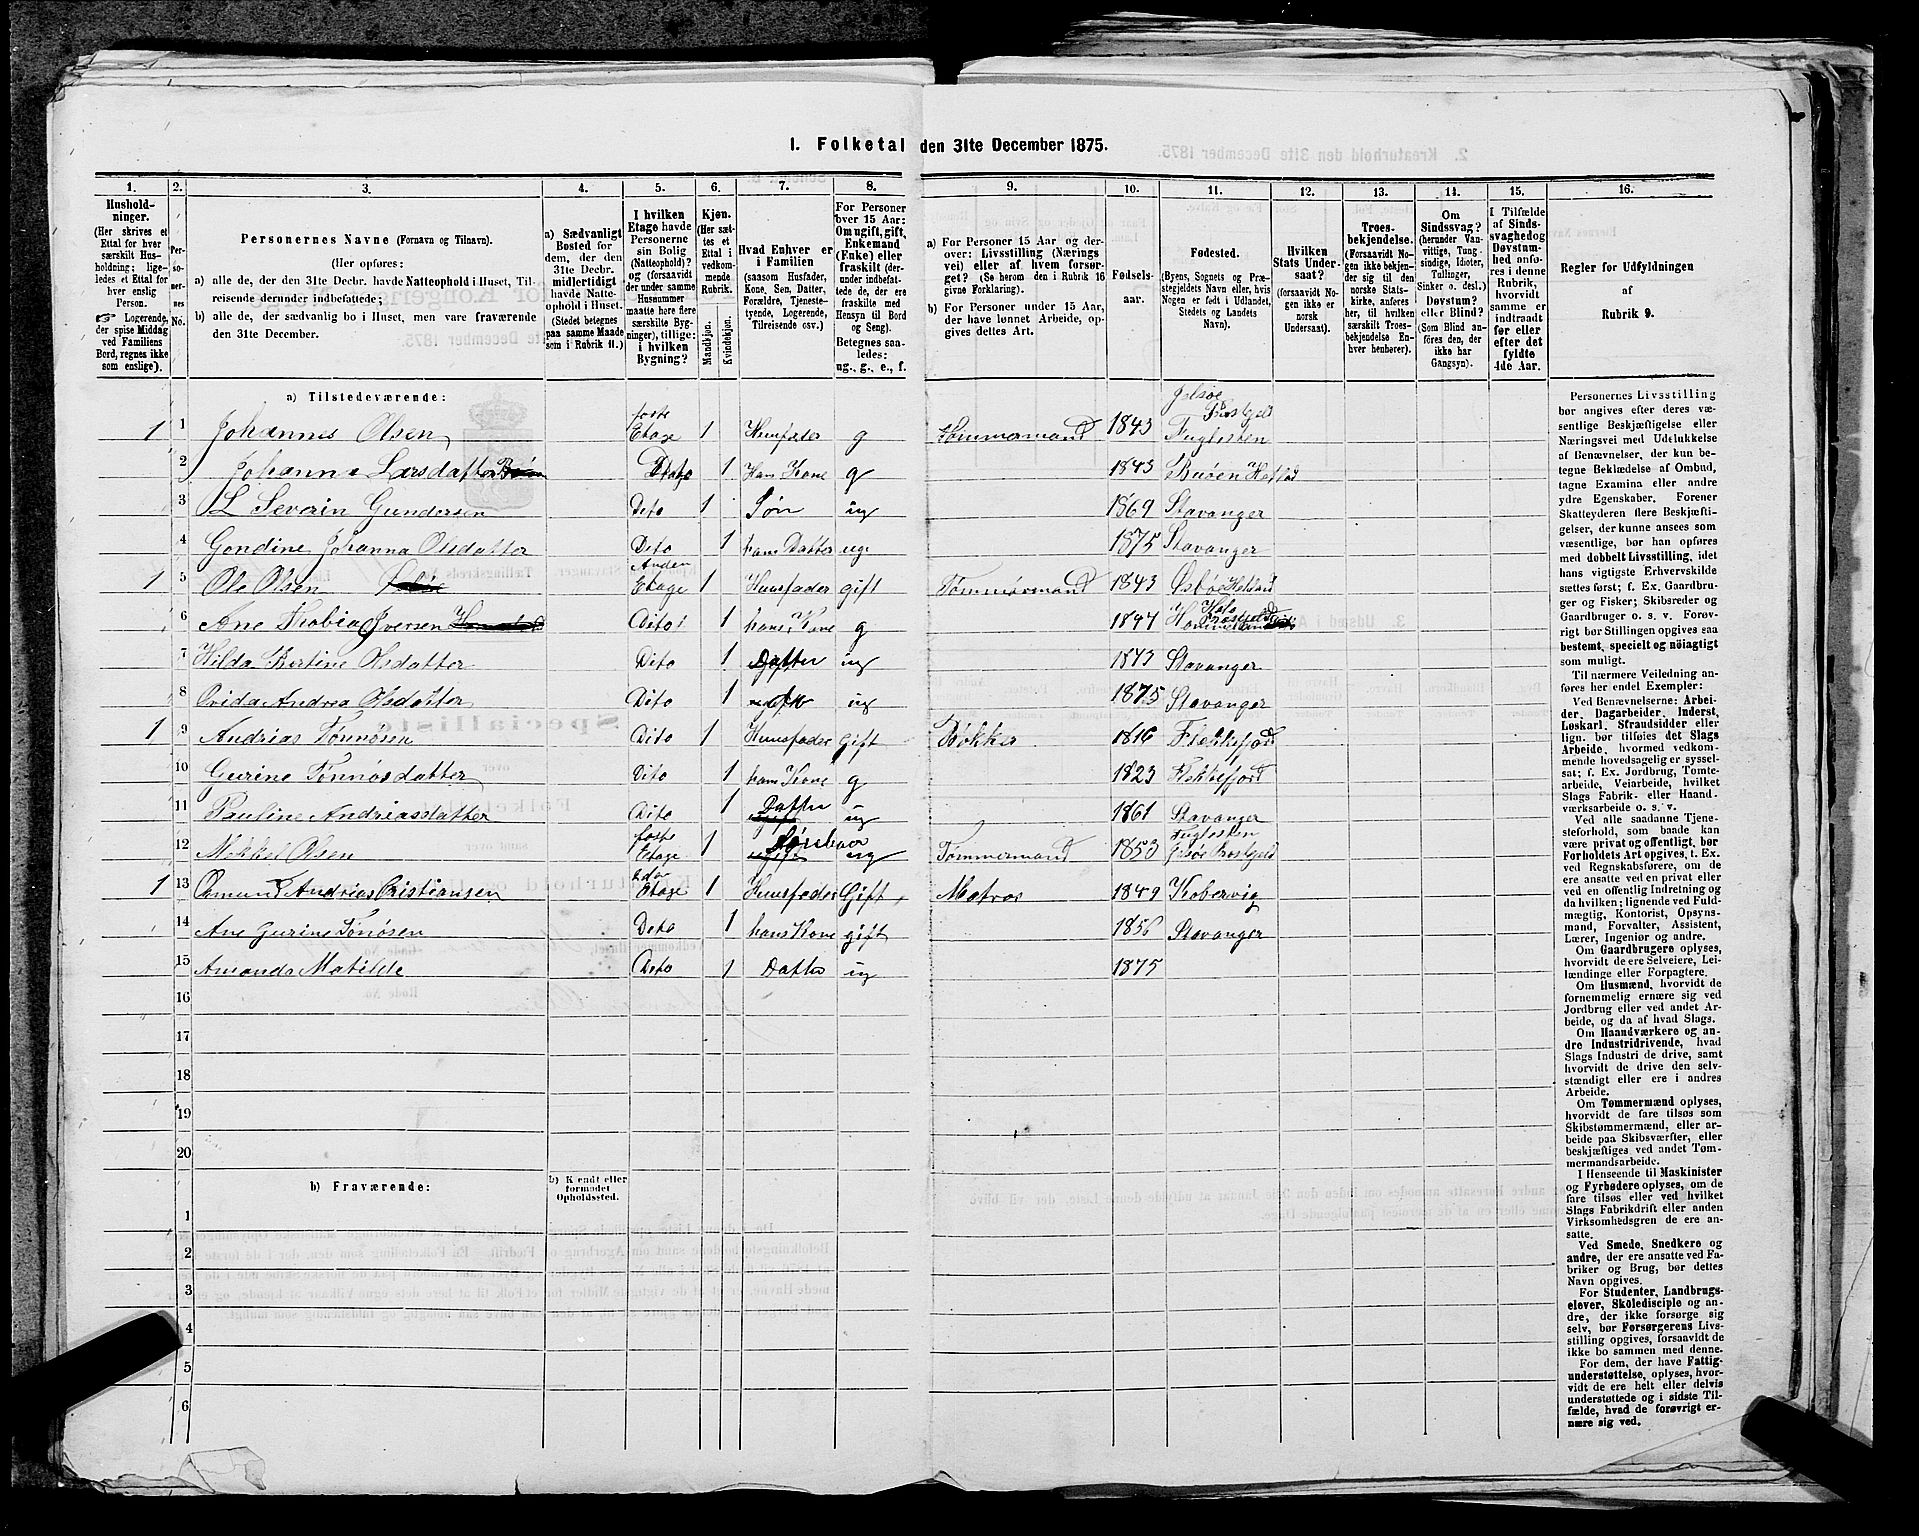 1. Folketal den 31te December 1875.
1. 2. 3. 4. 5. 6. 7. 8. 9. 10. 11. 12. 13. 14. 15. 16.
Husholdninger. (Her skrives et Ettal for hver særskilt Husholdning; ligeledes et Ettal for hver enslig Person. ☞ Logerende, der spise Middag ved Familiens Bord, regnes ikke som enslige).
Personernes No.
Personernes Navne (Fornavn og Tilnavn).
(Her opføres:
a) alle de, der den 31te Decbr. havde Natteophold i Huset, Tilreisende derunder indbefattede;
b) alle de, der sædvanlig bo i Huset, men vare fraværende den 31te December.
a) Sædvanligt Bosted for dem, der den 31te Decbr. midlertidigt havde Natteophold i Huset. (Stedet betegnes paa samme Maade som i Rubrik 11.)
I hvilken Etage havde Personerne sin Bolig (Natteophold)? og (forsaavidt der under samme Husnummer maatte høre flere særskilte Bygninger), tillige: i hvilken Bygning?
Kjøn. (Her sættes et Ettal i vedkommende Rubrik. Mandkjøn. Kvindekjøn.
Hvad Enhver er i Familien (saasom Husfader, Kone, Søn, Datter, Forældre, Tjenestetyende, Logerende, Tilreisende osv.)
For Personer over 15 Aar: Om ugift, gift, Enkemand (Enke) eller fraskilt (derunder indbefattede de, der ere fraskilte med Hensyn til Bord og Seng). Betegnes saaledes: ug., g., e., f.
a) For Personer 15 Aar og derover: Livsstilling (Nærings vei) eller af hvem forsørget? (Se herom den i Rubrik 16 givne Forklaring).
b) For Personer under 15 Aar, der have lønnet Arbeide, opgives dettes Art.
Fødselsaar.
Fødested. (Byens, Sognets og Præstegjeldets Navn eller, hvis Nogen er født i Udlandet, Stedets og Landets Navn).
Hvilken Stats Undersaat? (forsaavidt Nogen ikke er norsk Undersaat).
Troesbekjendelse. (Forsaavidt Nogen ikke bekjender sig til den norske Statskirke, anføres her, til hvilken særskilt Troesbekjendelse Enhver henhører).
Om Sindssvag? (herunder Vanvittige, Tungsindige, Idioter, Tullinger, Sinker o. desl.) Døvstum? eller Blind? (Som Blind anføres den, der ikke har Gangsyn).
I Tilfælde af Sindssvaghed og Døvstumhed anføres i denne Rubrik, hvorvidt samme er indtraadt før eller efter det fyldte 4de Aar.
Regler for Udfyldningen af Rubrik 9.
a) Tilstedeværende:
1 1 Johannes Olsen første Etage 1 Huusfader g Tømmermand 1843 Jelsøe Prestgeld Fuglesten
2 Johanne Larsdatter Ditto 1 Hans Kone g 1843 Buøen Hetland
3 L Severin Gundersen Dito 1 Søn ug 1869 Stavanger
4 Gondine Johanna Olsdatter Dito 1 hans Datter ug 1875 Stavanger
1 5 Ole Olsen Anden Etage 1 Huusfader gift Tømmermand 1843 Østbøe Hetland
6 Ane Thobia Iversen Dito 1 hans Kone g 1847
7 Hilda Bertine Olsdatter Dito 1 Datter ug 1873 Stavanger
8 Ovida Andrea Olsdatter Dito 1 ug 1875 Stavanger
1 9 Andrias Tønnøsen Dito 1 Huusfader Gift Bøkker 1816 Flekkefjord
10 Gurine Tønnøsdatter Dito 1 hans Kone g 1823 Flekkefjord
11 Pauline Andriasdatter Dito 1 Datter ug 1861 Stavanger
12 Mekkel Olsen første Etage 1 ug Tømmermand 1853 Fuglesten Jelsøe Prestgeld
1 13 Osmund Andrias Cristiansen Etage 1 Huusfader Gift Matros 1849 Kobervig
14 Ane Gurine Tønøsen Dito 1 hans Kone gift 1856 Stavanger
15 Amanda Matilde Dito 1 Datter ug 1875
16
17
18
19
20
b) Fraværende:
b) Kjendt eller formodet Opholdssted.
1
2
3
4
5
6
Personernes Livsstilling
bør angives efter deres væ-
sentlige Beskjæftigelse eller
Næringsvei med Udelukkelse
af Benævnelser, der kun be-
tegne Beklædelse af Ombud,
tagne Examina eller andre
ydre Egenskaber. Forener
Skatteyderen flere Beskjæfti-
gelser, der kunne ansees som
væsentlige, bør han opføres
med dobbelt Livsstilling, idet
hans vigtigste Erhvervskilde
sættes først; f. Ex. Gaardbru-
ger og Fisker; Skibsreder og
Gaardbruger o. s. v. Forøv-
rigt bør Stillingen opgives saa
bestemt, specielt og nöiagtigt
som muligt.
Til nærmere Veiledning an-
føres her endel Exempler:
Ved Benævnelserne: Arbei-
der, Dagarbeider, Inderst,
Løskarl, Strandsidder eller
lign. bør tilføies det Slags
Arbeide, hvormed vedkom-
mende hovedsagelig er syssel-
sat; f. Ex. Jordbrug, Tomte-
arbeide, Veiarbeide, hvilket
Slags Fabrik- eller Haand-
værksarbeide o. s. v.
Ved alle saadanne Tjene-
steforhold, som baade kan
være privat og offentligt, bør
Forholdets Art opgives, t. Ex.
ved Regnskabsførere, om de
ere ansatte ved en privat eller
ved en offentlig Indretning og
da hvilken; lignende ved Fuld-
mægtig, Kontorist, Opsyns-
mand, Forvalter, Assistent,
Lærer, Ingeniør og andre.
Om Gaardbrugere oplyses,
hvorvidt de ere Selveiere, Lei-
lændinge eller Forpagtere.
Om Husmænd, hvorvidt de
fornemmelig ernære sig ved
Jordbrug eller ved andet Ar-
beide, og da af hvad Slags.
Om Haandværkere og an-
dre Industridrivende, hvad
Slags Industri de drive, samt
hvorvidt de drive den selv-
stændigt eller ere i andres
Arbeide.
Om Tømmermænd oplyses,
hvorvidt de fare tilsøs som
Skibstømmermænd, eller ar-
beide paa Skibsværfter, eller
beskjæftiges ved andet Tøm-
mermandsarbeide.
I Henseende til Maskinister
og Fyrbødere oplyses, om de
fare tilsøs eller ved hvilket
Slags Fabrikdrift eller anden
Virksomhedsgren de ere an-
satte.
Ved Smede, Snedkere og
andre, der ere ansatte ved Fa-
briker og Brug, bør dettes
Navn opgives.
For Studenter, Landbrugs-
elever, Skoledisciple og an-
dre, der ikke forsørge sig
selv, bør Forsørgerens Livs-
stilling opgives, forsaavidt de
ikke bo sammen med denne.
For dem, der have Fattig-
understøttelse, oplyses, hvor-
vidt de ere helt eller delvis
understøttede og i sidste Til-
fælde, hvad de forøvrigt er-
nære sig ved.